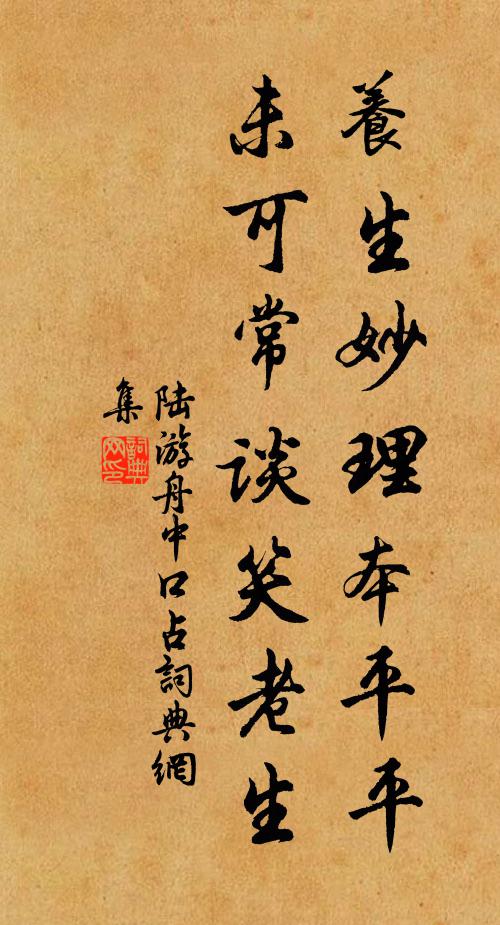 養生妙理本平平
未可常談笑老生
陆游舟中口占詞典網
集
詞典網印